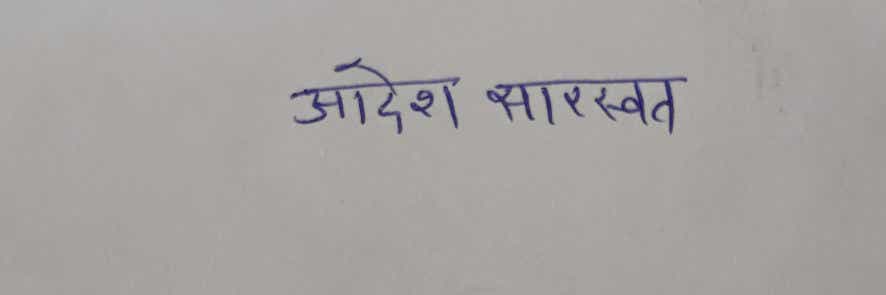 आदेश सारस्वत